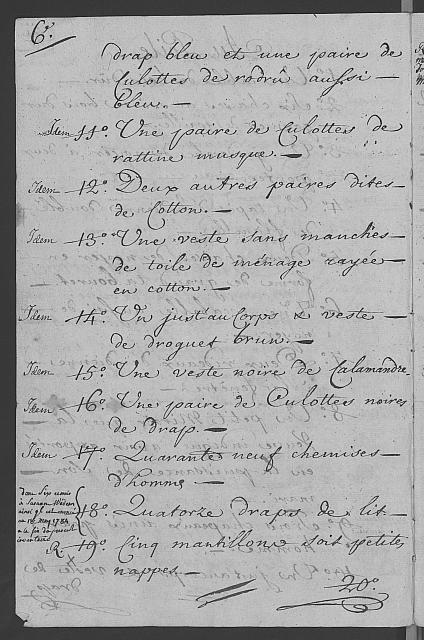 6.
drap bleu et une paire de
Culottes de rodrû aussi -
bleu. -
Idem 11°. Une paire de Culottes de
rattine masque. -
Idem 12°. Deux autres paires dites -
de Cotton. -
Idem 13°. Une veste sans manches -
de toile de ménage rayée -
en cotton. -
Idem 14°. Un just'au Corps & veste -
de droguet brun. -
Idem 15°. Une veste noire de Calamandre
Idem 16°. Une paire de Culottes noires
de drap. -
Idem 17°. Quarante neuf chemises -
d'homme -
dont Six remis
à
ainsi qu'il est
ce 18 May 1784
à la fin du présent
inventaire
18°. Quatorze draps de lit -
R. 19°. Cinq mantillons soit petites
nappes. -
20°.